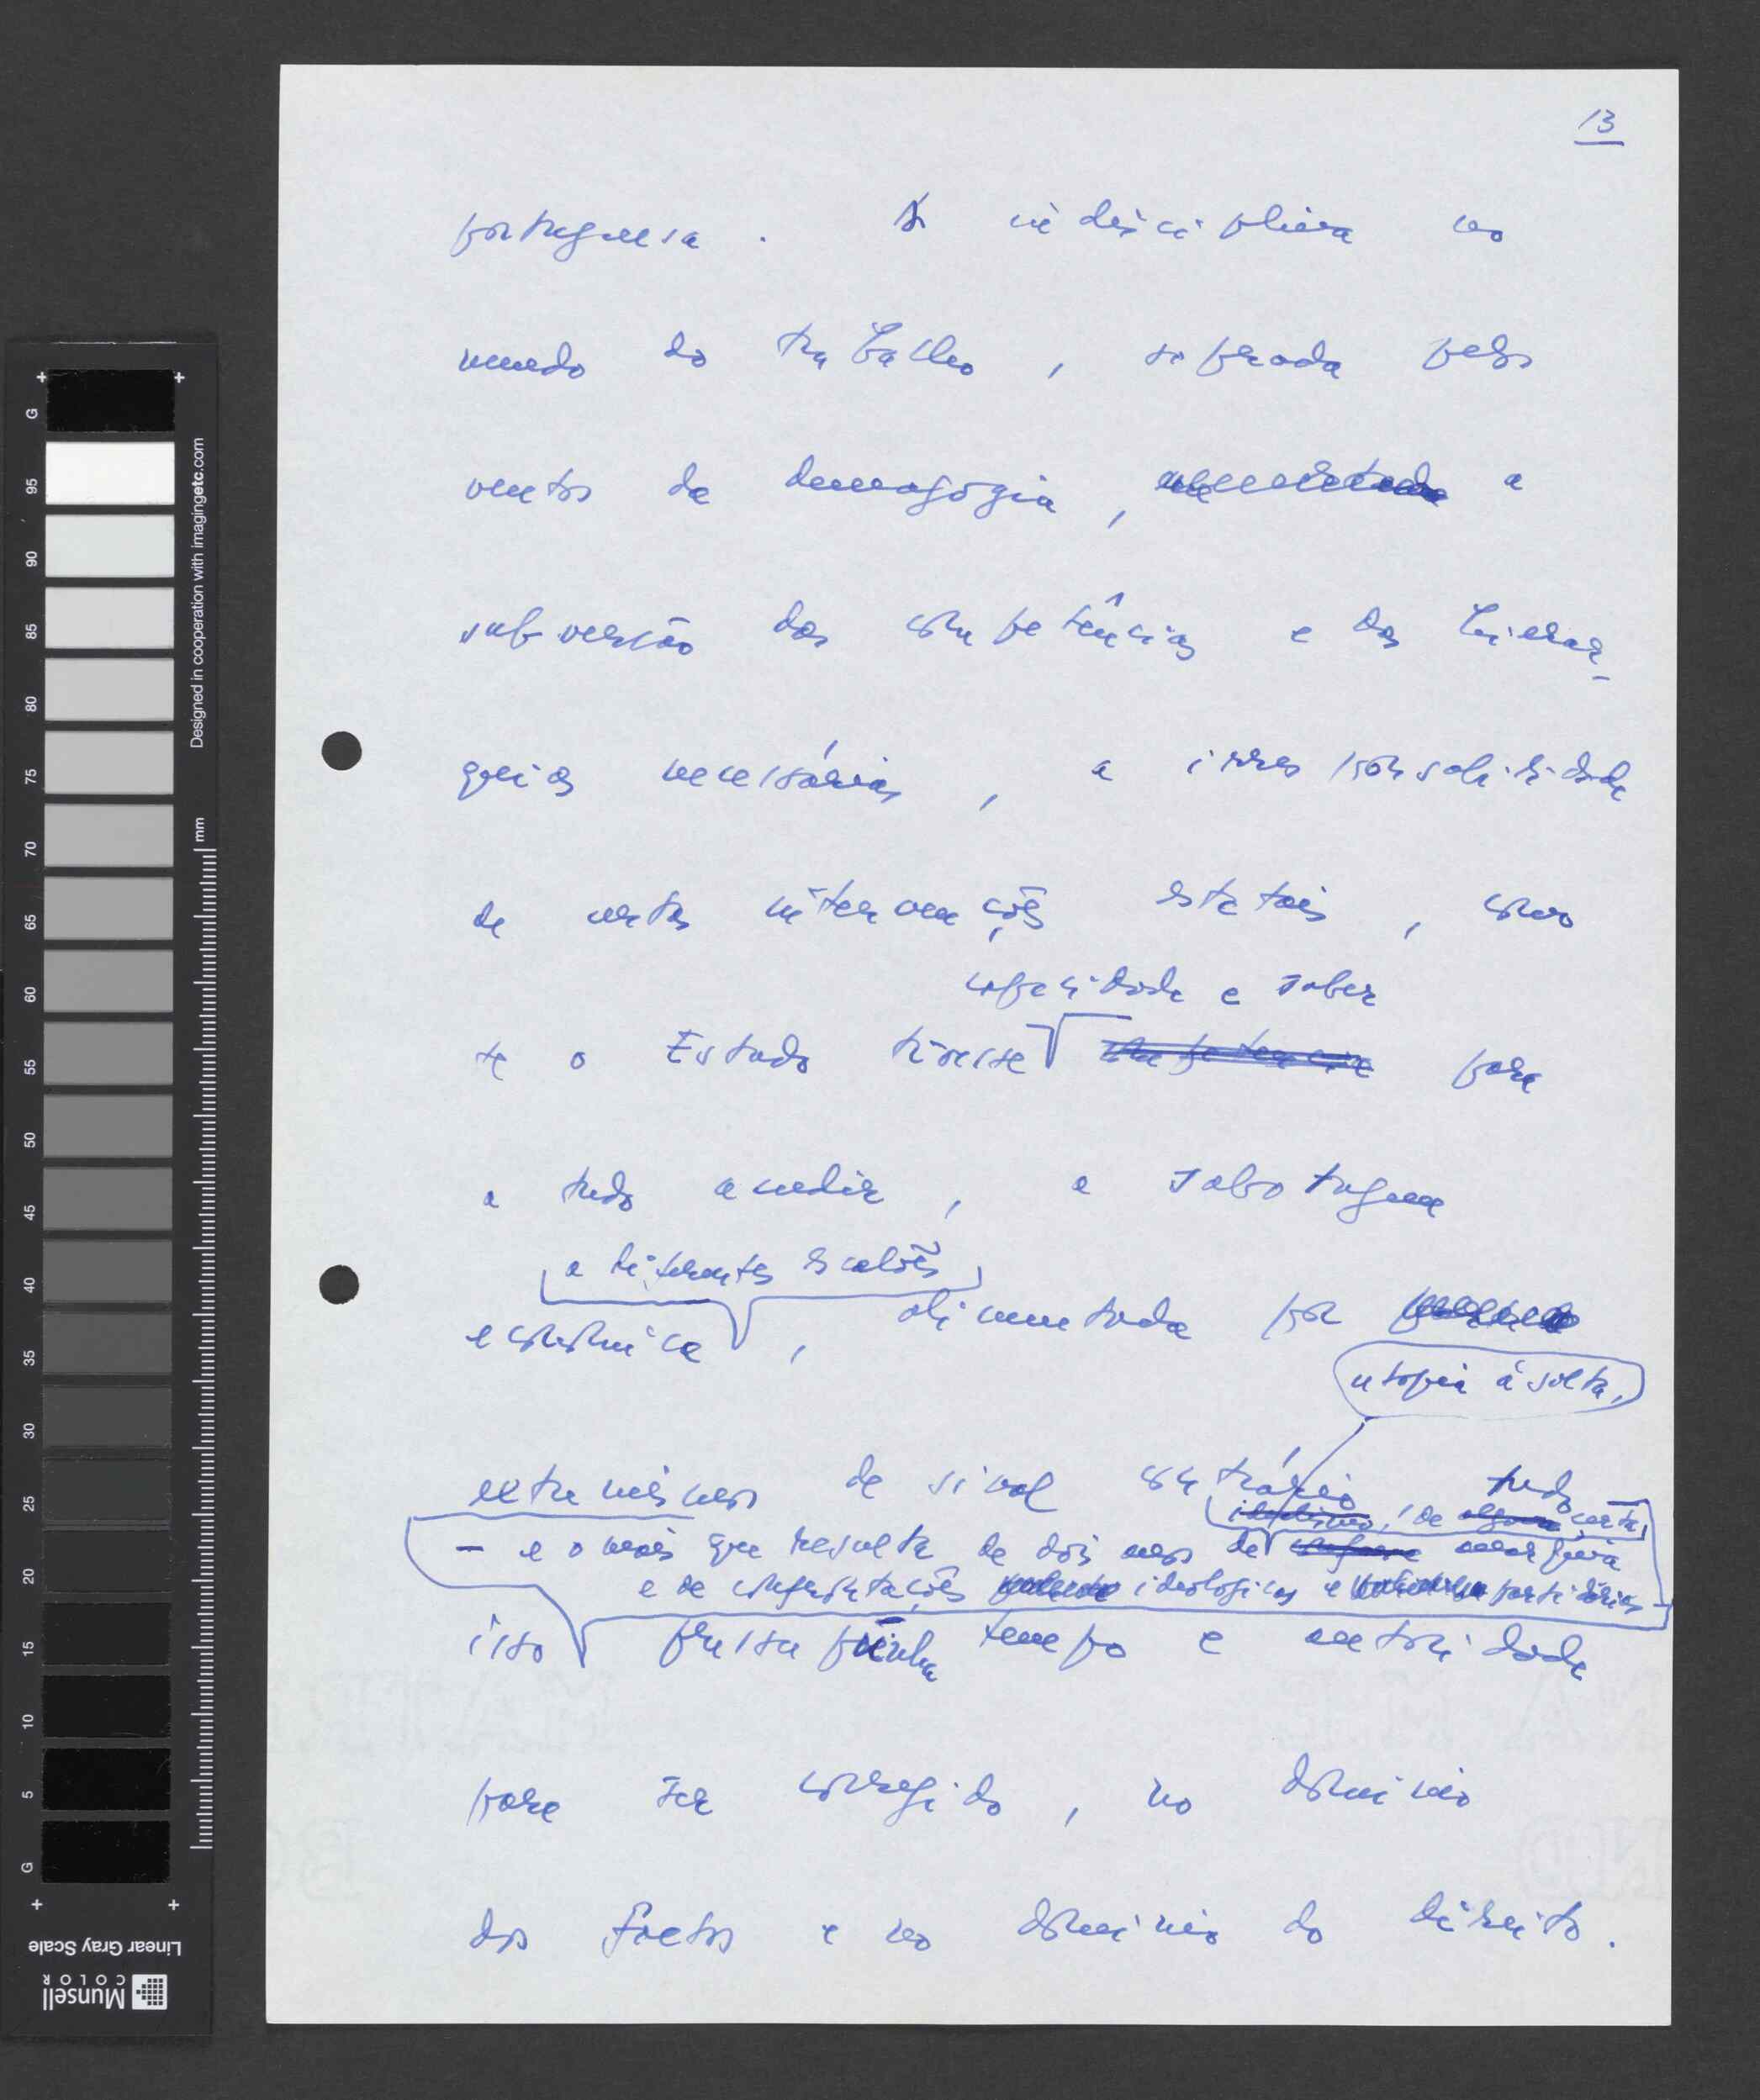 13
portuguesa. A indisciplina no
mundo do trabalho, soprada pelos
ventos da demagogia, a
subversão das competências e das hierar-
quias necessárias, a irresponsabilidade
de certas intervenções estatais, como
capacidade e saber
se o Estado tivesse competência para
a tudo acudir, a sabotagem
a diferentes escalões
económica, alimentada por
utopia à solta,
extremismos de sinal contrário tudo
idealismo, de alguma certa
– e o mais que resulta de dois anos de anarquia
e de confrontações ideológicas e partidárias –
isso pressupunha tempo e autoridade
para ser corrigido, no domínio
dos factos e no domínio do direito.
Designed in cooperation with imagingetc.com
mm
G 95 90 85 80 75 70 65 60 55 50 45 40 35 30 25 20 15 10 5 G
Linear Gray Scale
Munsell
COLOR